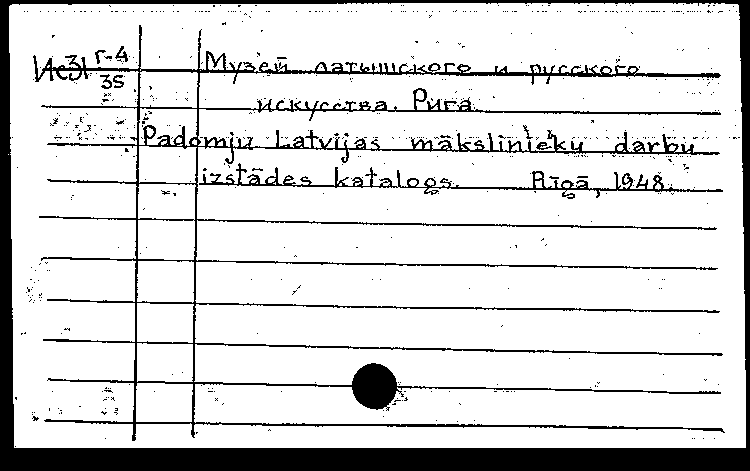 Ис31 Г-4
35
Музей латышского и русского
искусства. Рига
Padomju Latvijas mākslinieku darbu
izstādes katalogs. Rīgā, 1948.